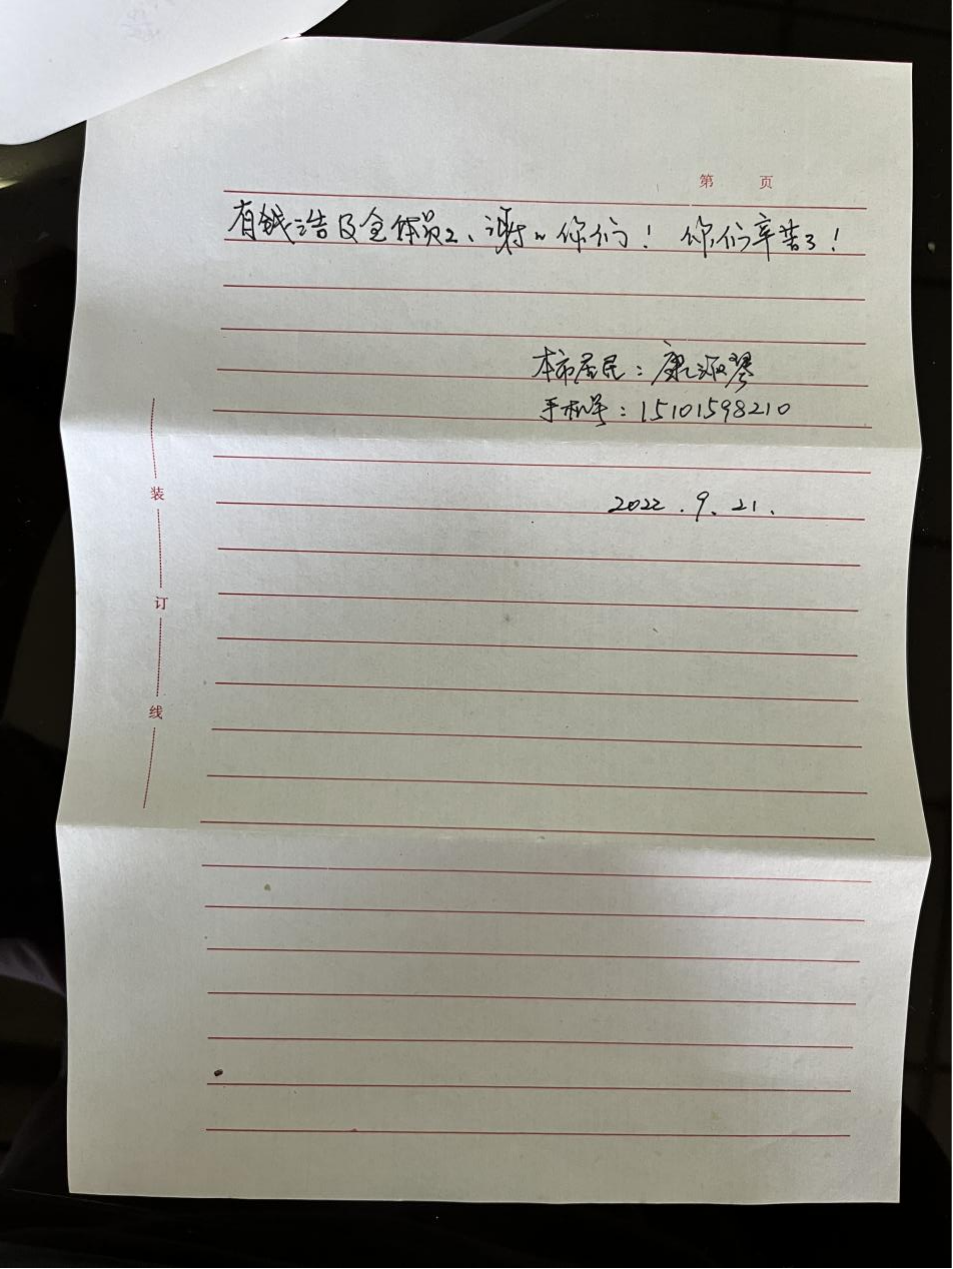 第 页
有钱浩及全体员工、谢々你们! 你们辛苦了!
本市居民:康淑琴
手机号:15101598210
2022.9.21.
装
订
线